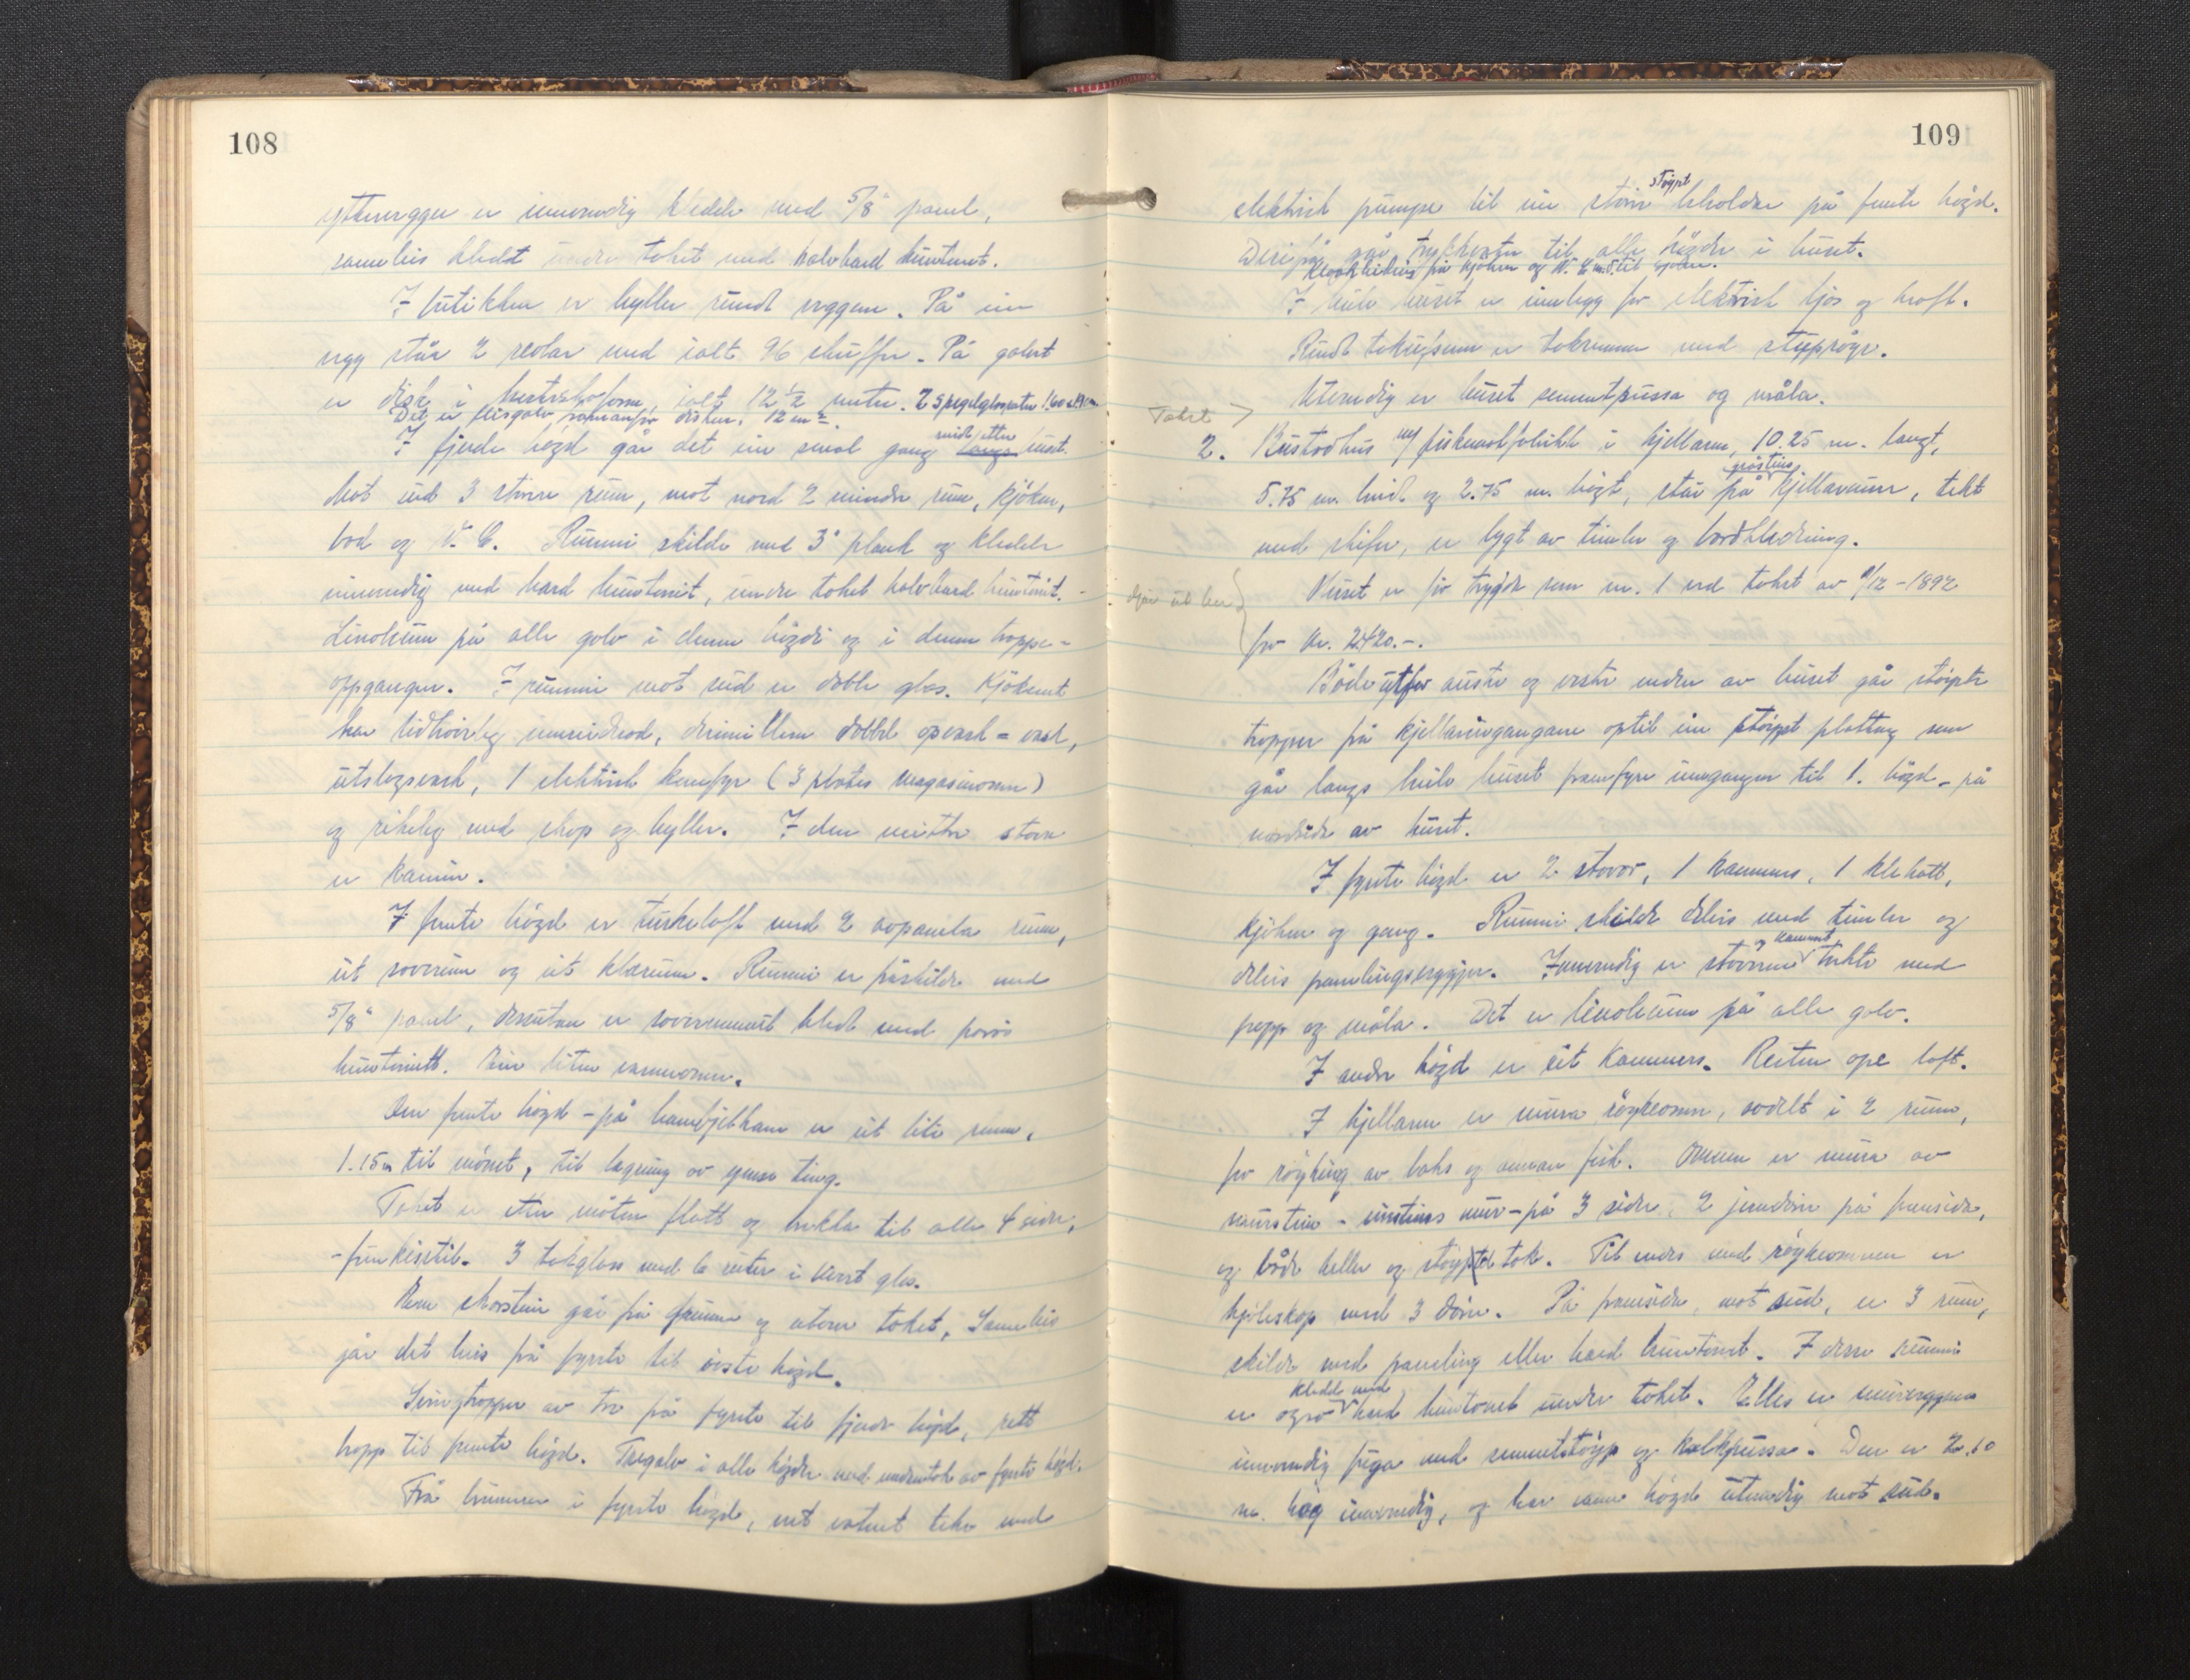 108
ytterveggen er innvendig kledde med 5/8" panel,
sameleis kledt under taket med halvhard huntonit.
I butikken er hyller rundt veggene. På ein
vegg står 2 reolar med ialt 96 skuffer. På golvet
er disk i hesteskoform, ialt 12 1/2 meter. 2 spegelglasruter
Det er flisgolv framanfor disken. 12 m².
I fjerde högd går det ein smal gang midt etter huset.
Mot sud 3 större rum, mot nord 2 mindre rum, kjöken,
bod og W.C. Rummi skilde med 3" plank og kledde
innvendig med hard huntonit, under taket halvhard huntonit.
Linoleum på alle golv i denne högdi og i denne trappe-
oppgangen. I rummi mot sud er doble glas. Kjökenet
har tidhöveleg innreidnad, derimillom dobbel opvask-vask,
utslagsvask, 1 elektrisk komfyr (3 plates magasinomn)
og rikeleg med skap og hyller. I den midtre stova
er kamin.
I femte högd er turkeloft med 2 avpanela rum,
eit soverum og eit klærum. Rummi er fråskilde med
5/8" panel, dessutan er soverommet kledt med porös
huntonitt. Ein liten varmeomn.
Over femte högd - på hanebjelkane er eit lite rum,
1.15 m til mönet, til lagring av ymse ting.
Taket er etter måten flatt og brekka til alle 4 sider,
- funkisstil. 3 takglas med 6 ruter i kvart glas.
Ein skorstein går frå grunnen og utover taket. Sameleis
går det heis frå fyrste til övste högd.
Svingtrapper av tre frå fyrste til fjerde högd, rett
trapp til femte högd. Tregolv i alle högder med undantak av fyrste högd.
Frå brunnen i fyrste högd, vert vatnet teke med
109
elektrisk pumpe til ein større støypt behaldar på femte högd.
Derifrå går trykkvatn til alle högder i huset.
Kloakkleidning frå kjöken og W.C. m.v. til sjöen.
I heile huset er innlegg for elektrisk ljos og kraft.
Rundt takufsene er takrenner med stupröyr.
Utvendig er huset sementpussa og måla.
Taket >
2. Bustadhus m/ fiskematfabrikk i kjellaren, 10.25 m. langt,
5.75 m. breidt og 2.75 m. högt, står på gråsteins kjellarmur, tekt
med skifer, er bygt av timber og bordkledning.
Huset er för trygda som nr. 1 ved takst av 9/12 - 1892
for kr. 2420.-.
Både utfor austre og vestre enden av huset går støypte
trapper frå kjellarinngangane optil ein støypt platting som
går langs heile huset framfyre inngangen til 1. högd - på
nordsida av huset.
I fyrste högd er 2 stover, 1 kammers, 1 klekott,
kjöken og gang. Rummi skilde delvis med timber og
delvis panelingsveggjer. Innvendig er stovene og kammerset trekte med
papp og måla. Det er linoleum på alle golv.
I andre högd er eit kammers. Resten ope loft.
I kjellaren er mura röykeomn, avdelt i 2 rum,
for röyking av laks og annan fisk. Omnen er mura av
murstein - einsteins mur - på 3 sider, 2 jerndörer på framsida,
og både heller og støypt tak. Til vers med röykeomnen er
kjöleskap med 3 dörer. På framsida, mot sud, er 3 rum,
skilde med paneling eller hard huntonit. I desse rummi
er også kledde med hard huntonit under taket. Elles er murveggene
innvendig fuga med sementstøyp og kalkpussa. Den er 2.10
m. høg innvendig, og har same högde utvendig mot sud.